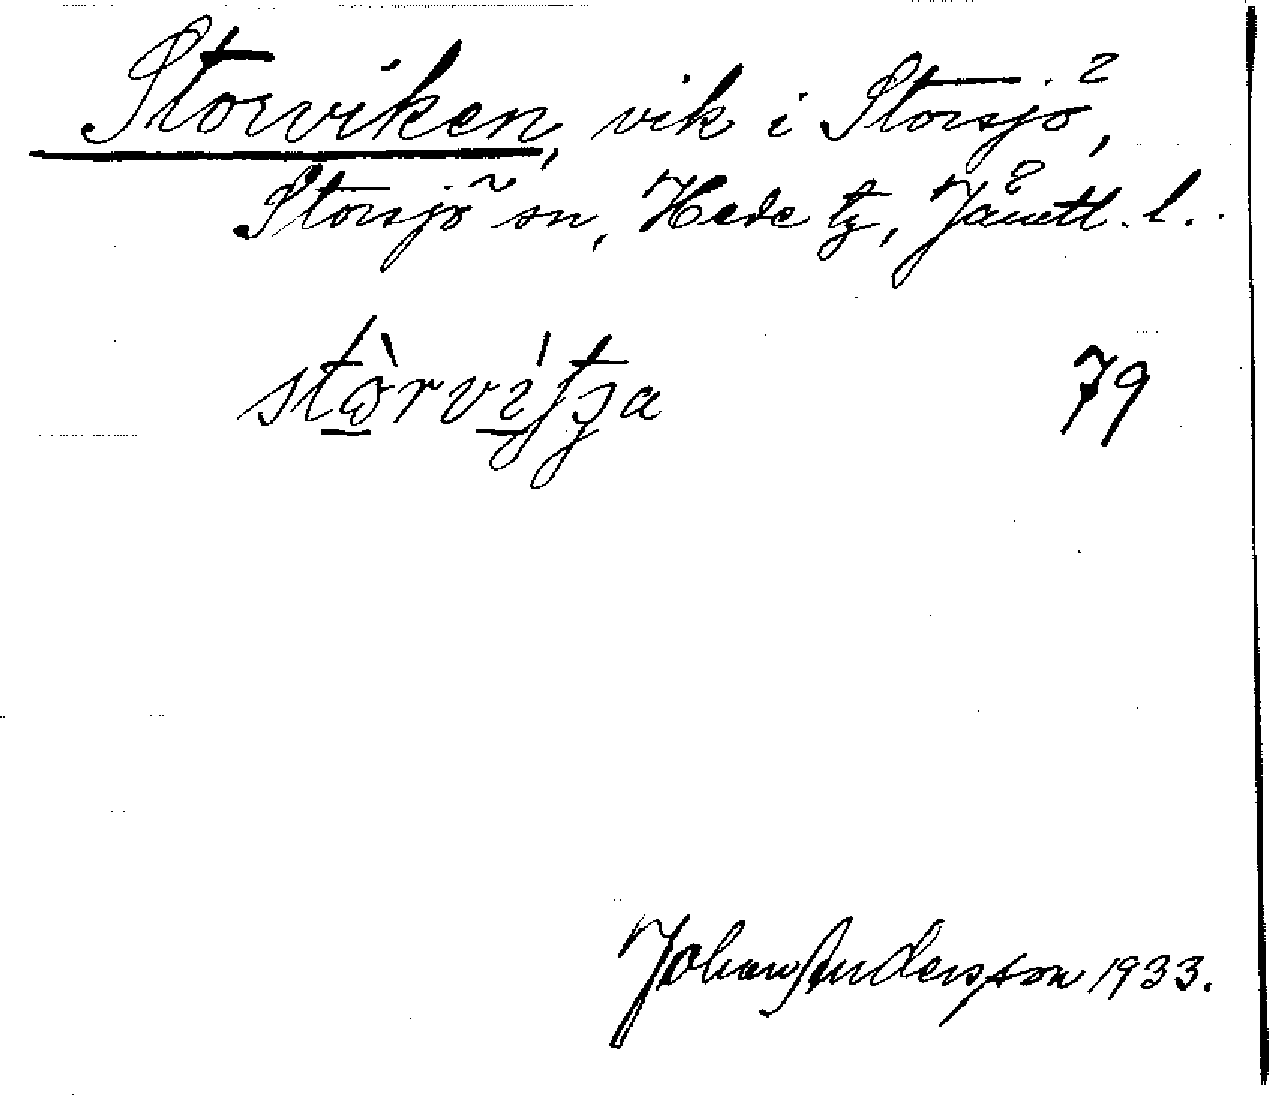 Storviken, vik i Storsjö,
Storsjö sn, Hede tg, Jämtl. l.
79
Johan Andersson 1933.